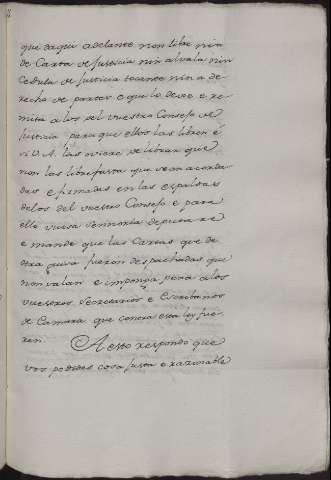 que daqui adelante non libre nin
de Carta de Justicia nin alvala nin
Cedula de Justicia tocante nin a de-
recho de partes e que lo deve e re-
mita a los del vuestro Consejo de
Justicia para que ellos las libren e
si V. A. las oviere de librar que
non las libre fasta que sean acorda-
das e firmadas en las espaldas
de los del vuestro Consejo e para
ello vuesa Sennoria deputare
e mande que las Cartas que de
otra guisa fueren despachadas que
non valan e imponga pena a los
vuestros Secretarios e Escribanos
de Camara que contra esta ley fue-
ren. A esto respondo que
vos pedides cosa justa e razonable